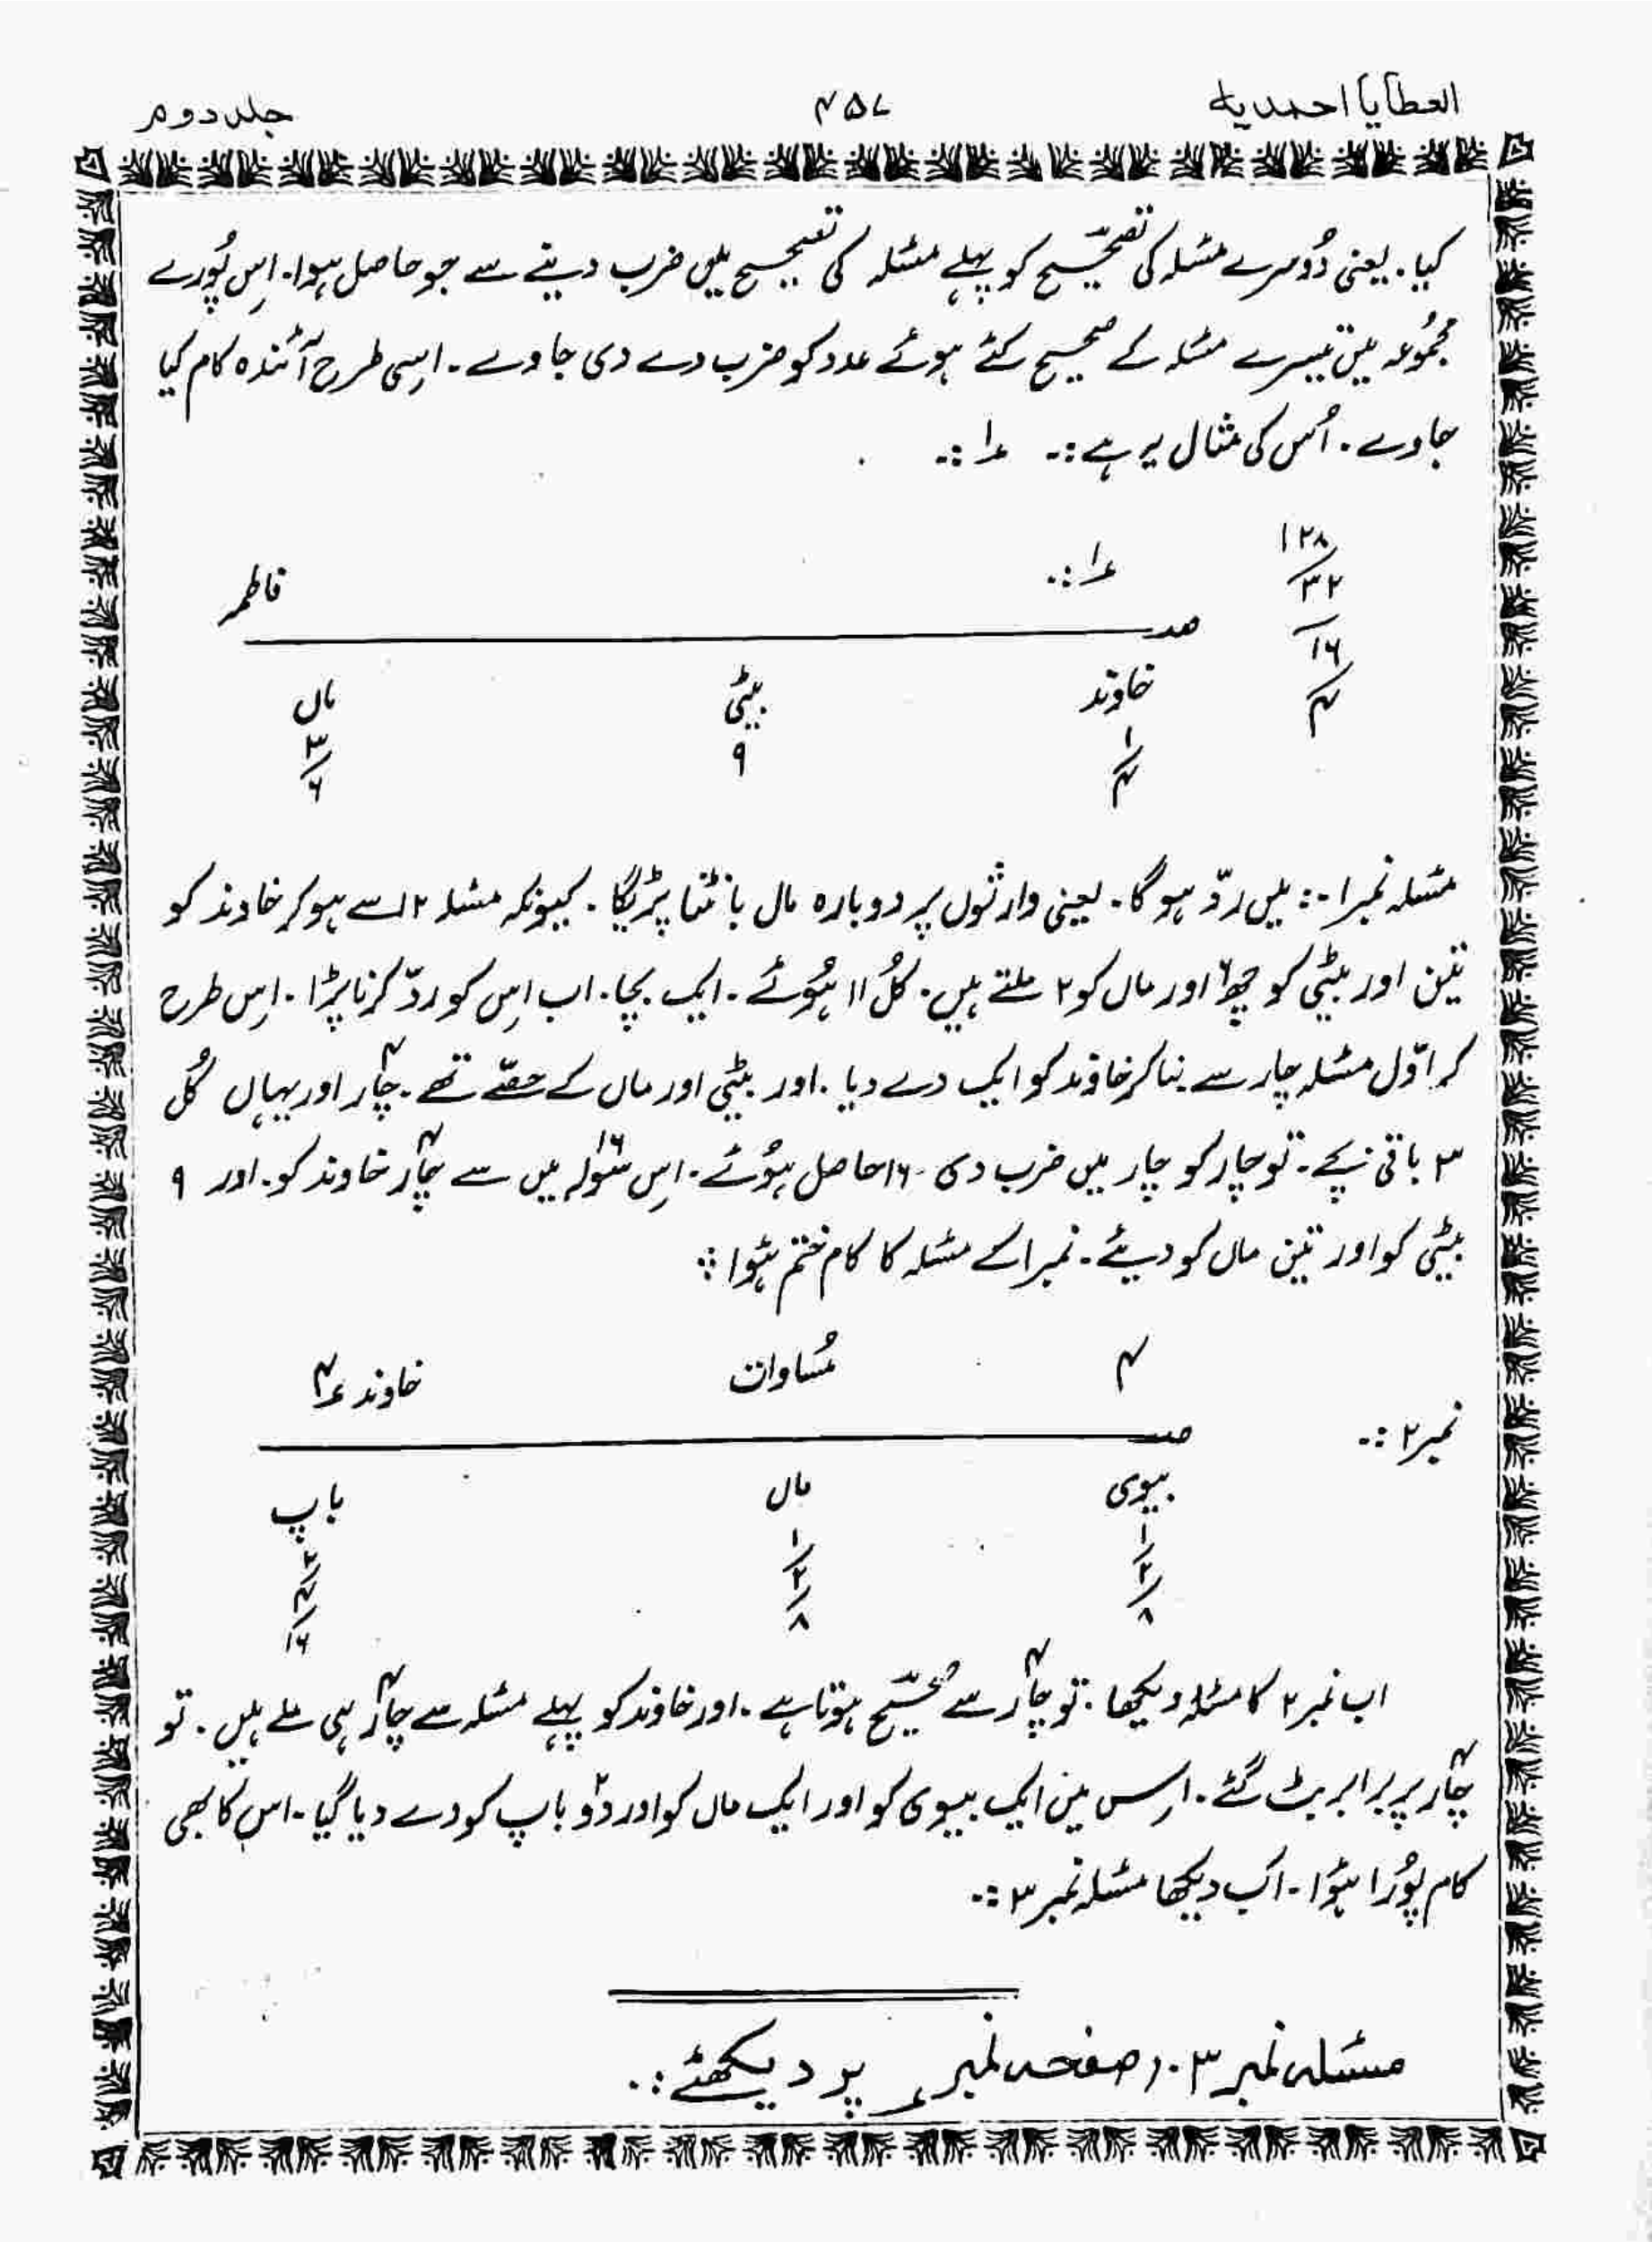 العطایا احمدیہ
۴۵۷
جلد دوم
کیا۔ یعنی دُوسرے مسئلہ کی تصحیح کو پہلے مسئلہ کی تصحیح میں ضرب دینے سے جو حاصل ہوا۔ اِس پُورے
مجمُوعہ میں تیسرے مسئلہ کے صحیح کئے ہوئے عدد کو ضرب دے دی جاوے۔ اِسی طرح آئندہ کام کیا
جاوے۔ اُس کی مثال یہ ہے :۔ ؏۱ :۔
۱۲۸
۳۲
۱۶
۴
؏۱ :۔ فاطمہ
مــ
خاوند بیٹی ماں
۱ ۹ ۳
۴ ۶
مسئلہ نمبر ۱ :۔ میں ردّ ہو گا۔ یعنی وارثوں پر دوبارہ مال بانٹنا پڑیگا۔ کیونکہ مسئلہ ۱۲ سے ہو کر خاوند کو
تین اور بیٹی کو چھ۶ اور ماں کو ۲ ملتے ہیں۔ کُل ۱۱ ہُوئے۔ ایک بچا۔ اب اِس کو ردّ کرنا پڑا۔ اِس طرح
کہ اوّل مسئلہ چار سے بنا کر خاوند کو ایک دے دیا۔ اور بیٹی اور ماں کے حصّے تھے۔ چار۴ اور یہاں کُل
۳ باقی بچے۔ تو چار کو چار میں ضرب دی ۔ ۱۶ حاصل ہُوئے۔ اِس سَولہ۱۶ میں سے چار۴ خاوند کو۔ اور ۹
بیٹی کو اور تین ماں کو دیئے۔ نمبر ۱ کے مسئلہ کا کام ختم ہُوا ؞
۴ مُساوات خاوند ؏۴
نمبر ۲ :۔ مــ
بیوی ماں باپ
۱ ۱ ۲
۲ ۲ ۴
۸ ۸ ۱۶
اب نمبر ۲ کا مسئلہ دیکھا۔ تو چار۴ سے صحیح ہوتا ہے۔ اور خاوند کو پہلے مسئلہ سے چار۴ ہی ملے ہیں۔ تو
چار۴ پر برابر بٹ گئے۔ اِس میں ایک بیوی کو اور ایک ماں کو اور دو۲ باپ کو دے دیا گیا۔ اس کا بھی
کام پُورا ہُوا۔ اَب دیکھا مسئلہ نمبر ۳ :۔
مسئلہ نمبر ۳۔ صفحہ نمبر پر دیکھئے :۔